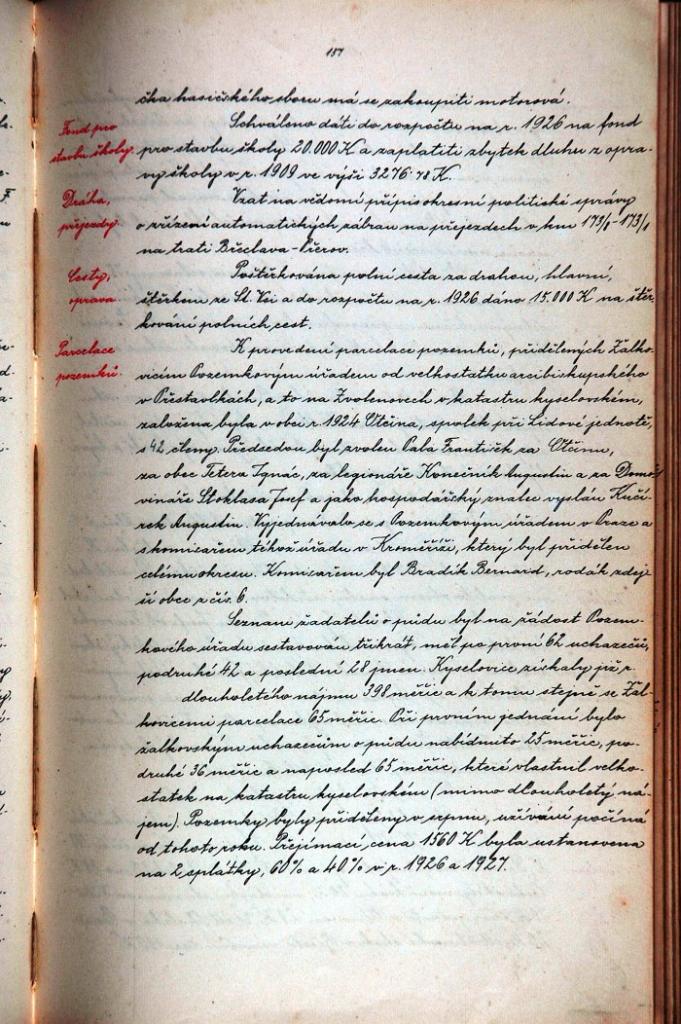 157
čka hasičského sboru má se zakoupiti motorová.
Fond pro
stavbu školy.
Schváleno dáti do rozpočtu na r. 1926 na fond
pro stavbu školy 20.000 K a zaplatiti zbytek dluhu z opra-
vy školy v r. 1909 ve výši 3276·78 K.
Dráha,
přejezdy.
Vzat na vědomí přípis okresní politické správy
o zřízení automatických zábran na přejezdech v km 173/8-173/1
na trati Břeclava-Přerov.
Cesty,
oprava
Poštěrkována polní cesta za drahou, hlavní,
štěrkem ze St. Vsi a do rozpočtu na r. 1926 dáno 15.000 K na štěr-
kování polních cest.
Parcelace
pozemků.
K provedení parcelace pozemků, přidělených Žalko-
vicím Pozemkovým úřadem od velkostatku arcibiskupského
v Přestavlkách, a to na Zvolenovech v katastru kyselovském,
založena byla v obci r. 1924 Otčina, spolek při Lidové jednotě,
s 42 členy. Předsedou byl zvolen Pala František za Otčinu,
za obec Tetera Ignác, za legionáře Konečník Augustin a za Domo-
vináře Stoklasa Josef a jako hospodářský znalec vyslán Kučí-
rek Augustin. Vyjednávalo se s Pozemkovým úřadem v Praze a
s komisařem téhož úřadu v Kroměříži, který byl přidělen
celému okresu. Komisařem byl Bradík Bernard, rodák zdej-
ší obce z čís. 6.
Seznam žadatelů o půdu byl na žádost Pozem-
kového úřadu sestavován třikrát, měl po první 62 uchazečů,
podruhé 42 a poslední 28 jmen. Kyselovice získaly již z
dlouholetého nájmu 398 měřic a k tomu stejně se Žal-
kovicemi parcelace 65 měřic. Při prvním jednání bylo
žalkovským uchazečům o půdu nabídnuto 25 měřic, po-
druhé 36 měřic a naposled 65 měřic, které vlastnil velko-
statek na katastru kyselovském (mimo dlouholetý ná-
jem). Pozemky byly přiděleny v srpnu, užívání počíná
od tohoto roku. Přejímací cena 1560 K byla ustanovena
na 2 splátky, 60% a 40% v r. 1926 a 1927.